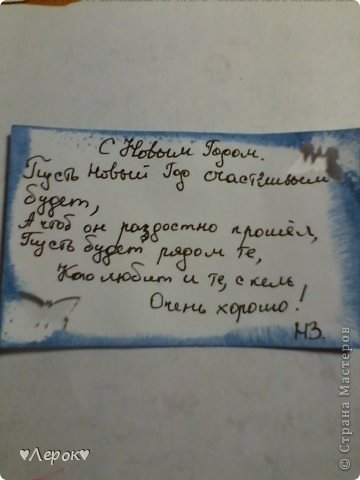 С Новым Годом.
Пусть Новый Год счастливым
будет,
А чтоб он раздостно прошёл,
Пусть будет рядом те,
Кто любит и те, с кем
Очень хорошо!
МЗ.
♥Лерок♥
© Страна Мастеров